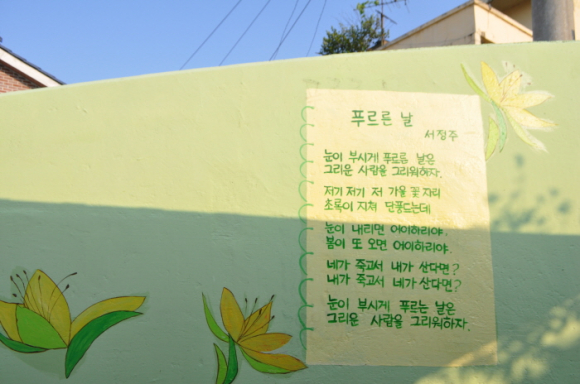 푸르른 날
서정주
눈이 부시게 푸르름 날은
그리운 사람을 그리워하자.
저기 저기 저 가을 꽃 자리
초록이 지쳐 단풍드는데
눈이 내리면 어이하리야.
봄이 또 오면 어이하리야.
네가 죽고서 내가 산다면?
내가 죽고서 네가 산다면?
눈이 부시게 푸르는 날은
그리운 사람을 그리워하자.